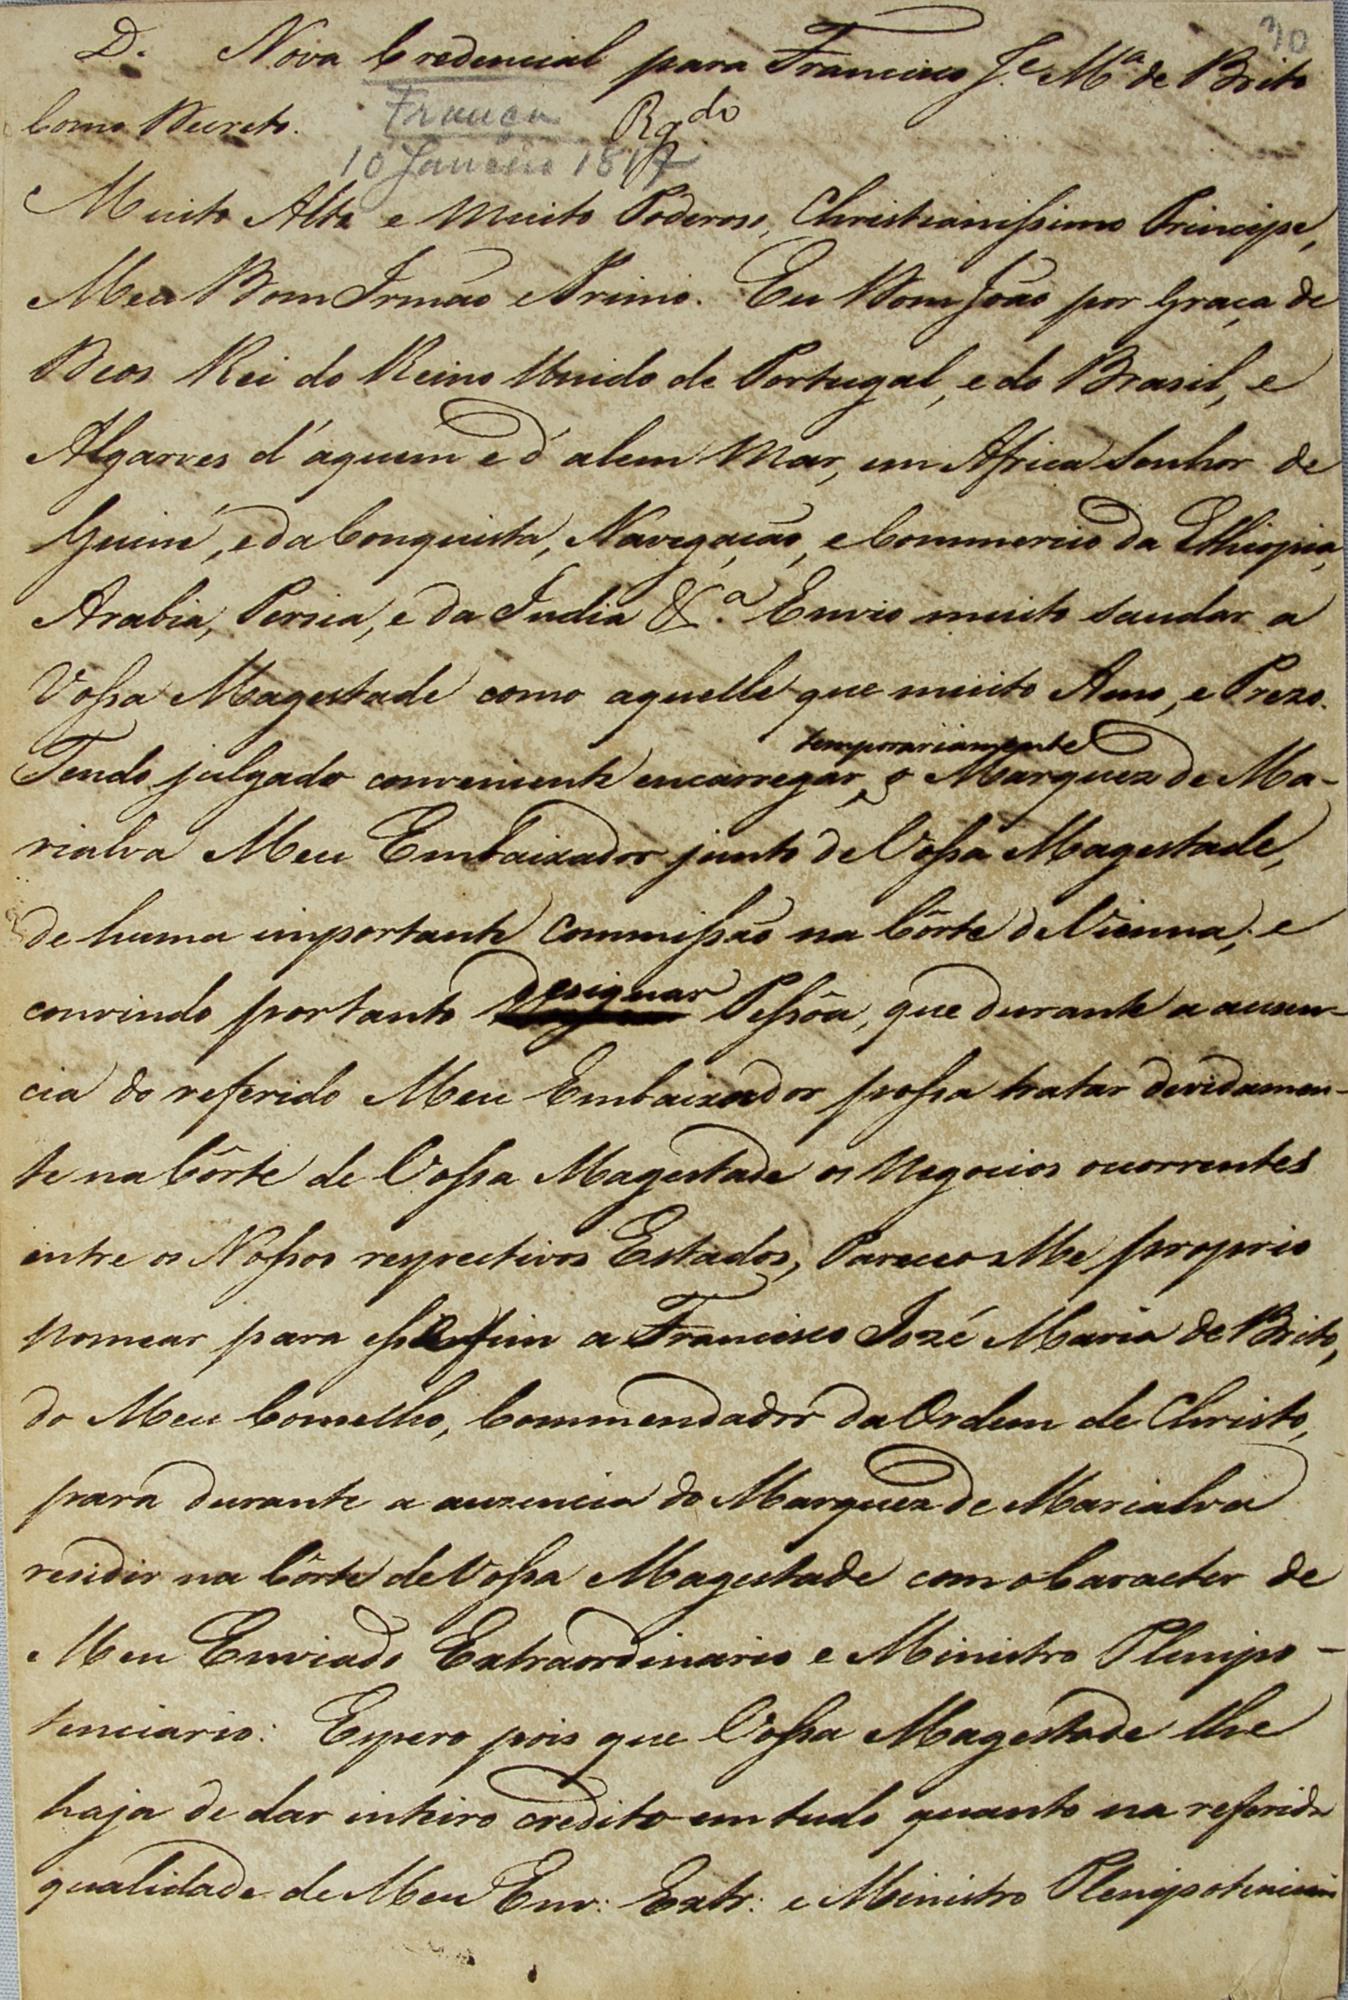 30
D. Nova Credencial para Francisco J.e M.a de Brito
Como Decreto.
França
Rg.do
10 Janeiro 1817
Muito Alto e Muito Poderoso, Christianissimo Principe,
Meu Bom Irmão e Primo. Eu Dom João por Graça de
Deos Rei do Reino Unido de Portugal, e do Brasil, e
Algarves d'aquem e d'alem Mar, em Africa Senhor de
Guiné, e da Conquista, Navegação, e Commercio da Ethiopia,
Arabia, Persia, e da India &.a Envio muito saudar a
Vossa Magestade como aquelle que muito Amo, e Prezo.
temporariamente
Tendo julgado conveniente encarregar o Marquez de Ma-
rialva Meu Embaixador junto de Vossa Magestade,
de huma importante Commissão na Côrte de Vienna; e
designar
convindo portanto Pessôa, que durante a ausen-
cia do referido Meu Embaixador possa tratar devidamen-
te na Côrte de Vossa Magestade os Negocios ocorrentes
entre os Nossos respectivos Estados, Pareceo Me proprio
nomear para esse fim a Francisco José Maria de Brito,
do Meu Conselho, Commendador da Ordem de Christo,
para durante a auzencia do Marquez de Marialva
residir na Côrte de Vossa Magestade com o Caracter de
Meu Enviado Extraordinario e Ministro Plenipo-
tenciario: Espero pois que Vossa Magestade lhe
haja de dar inteiro credito em tudo quanto na referida
qualidade de Meu Env: Extr: e Ministro Plenipotenciario